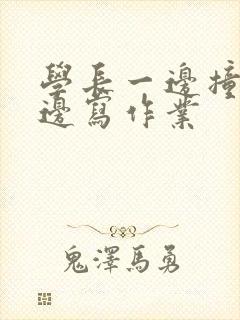 學長一邊撞
邊寫作業
鬼澤馬勇